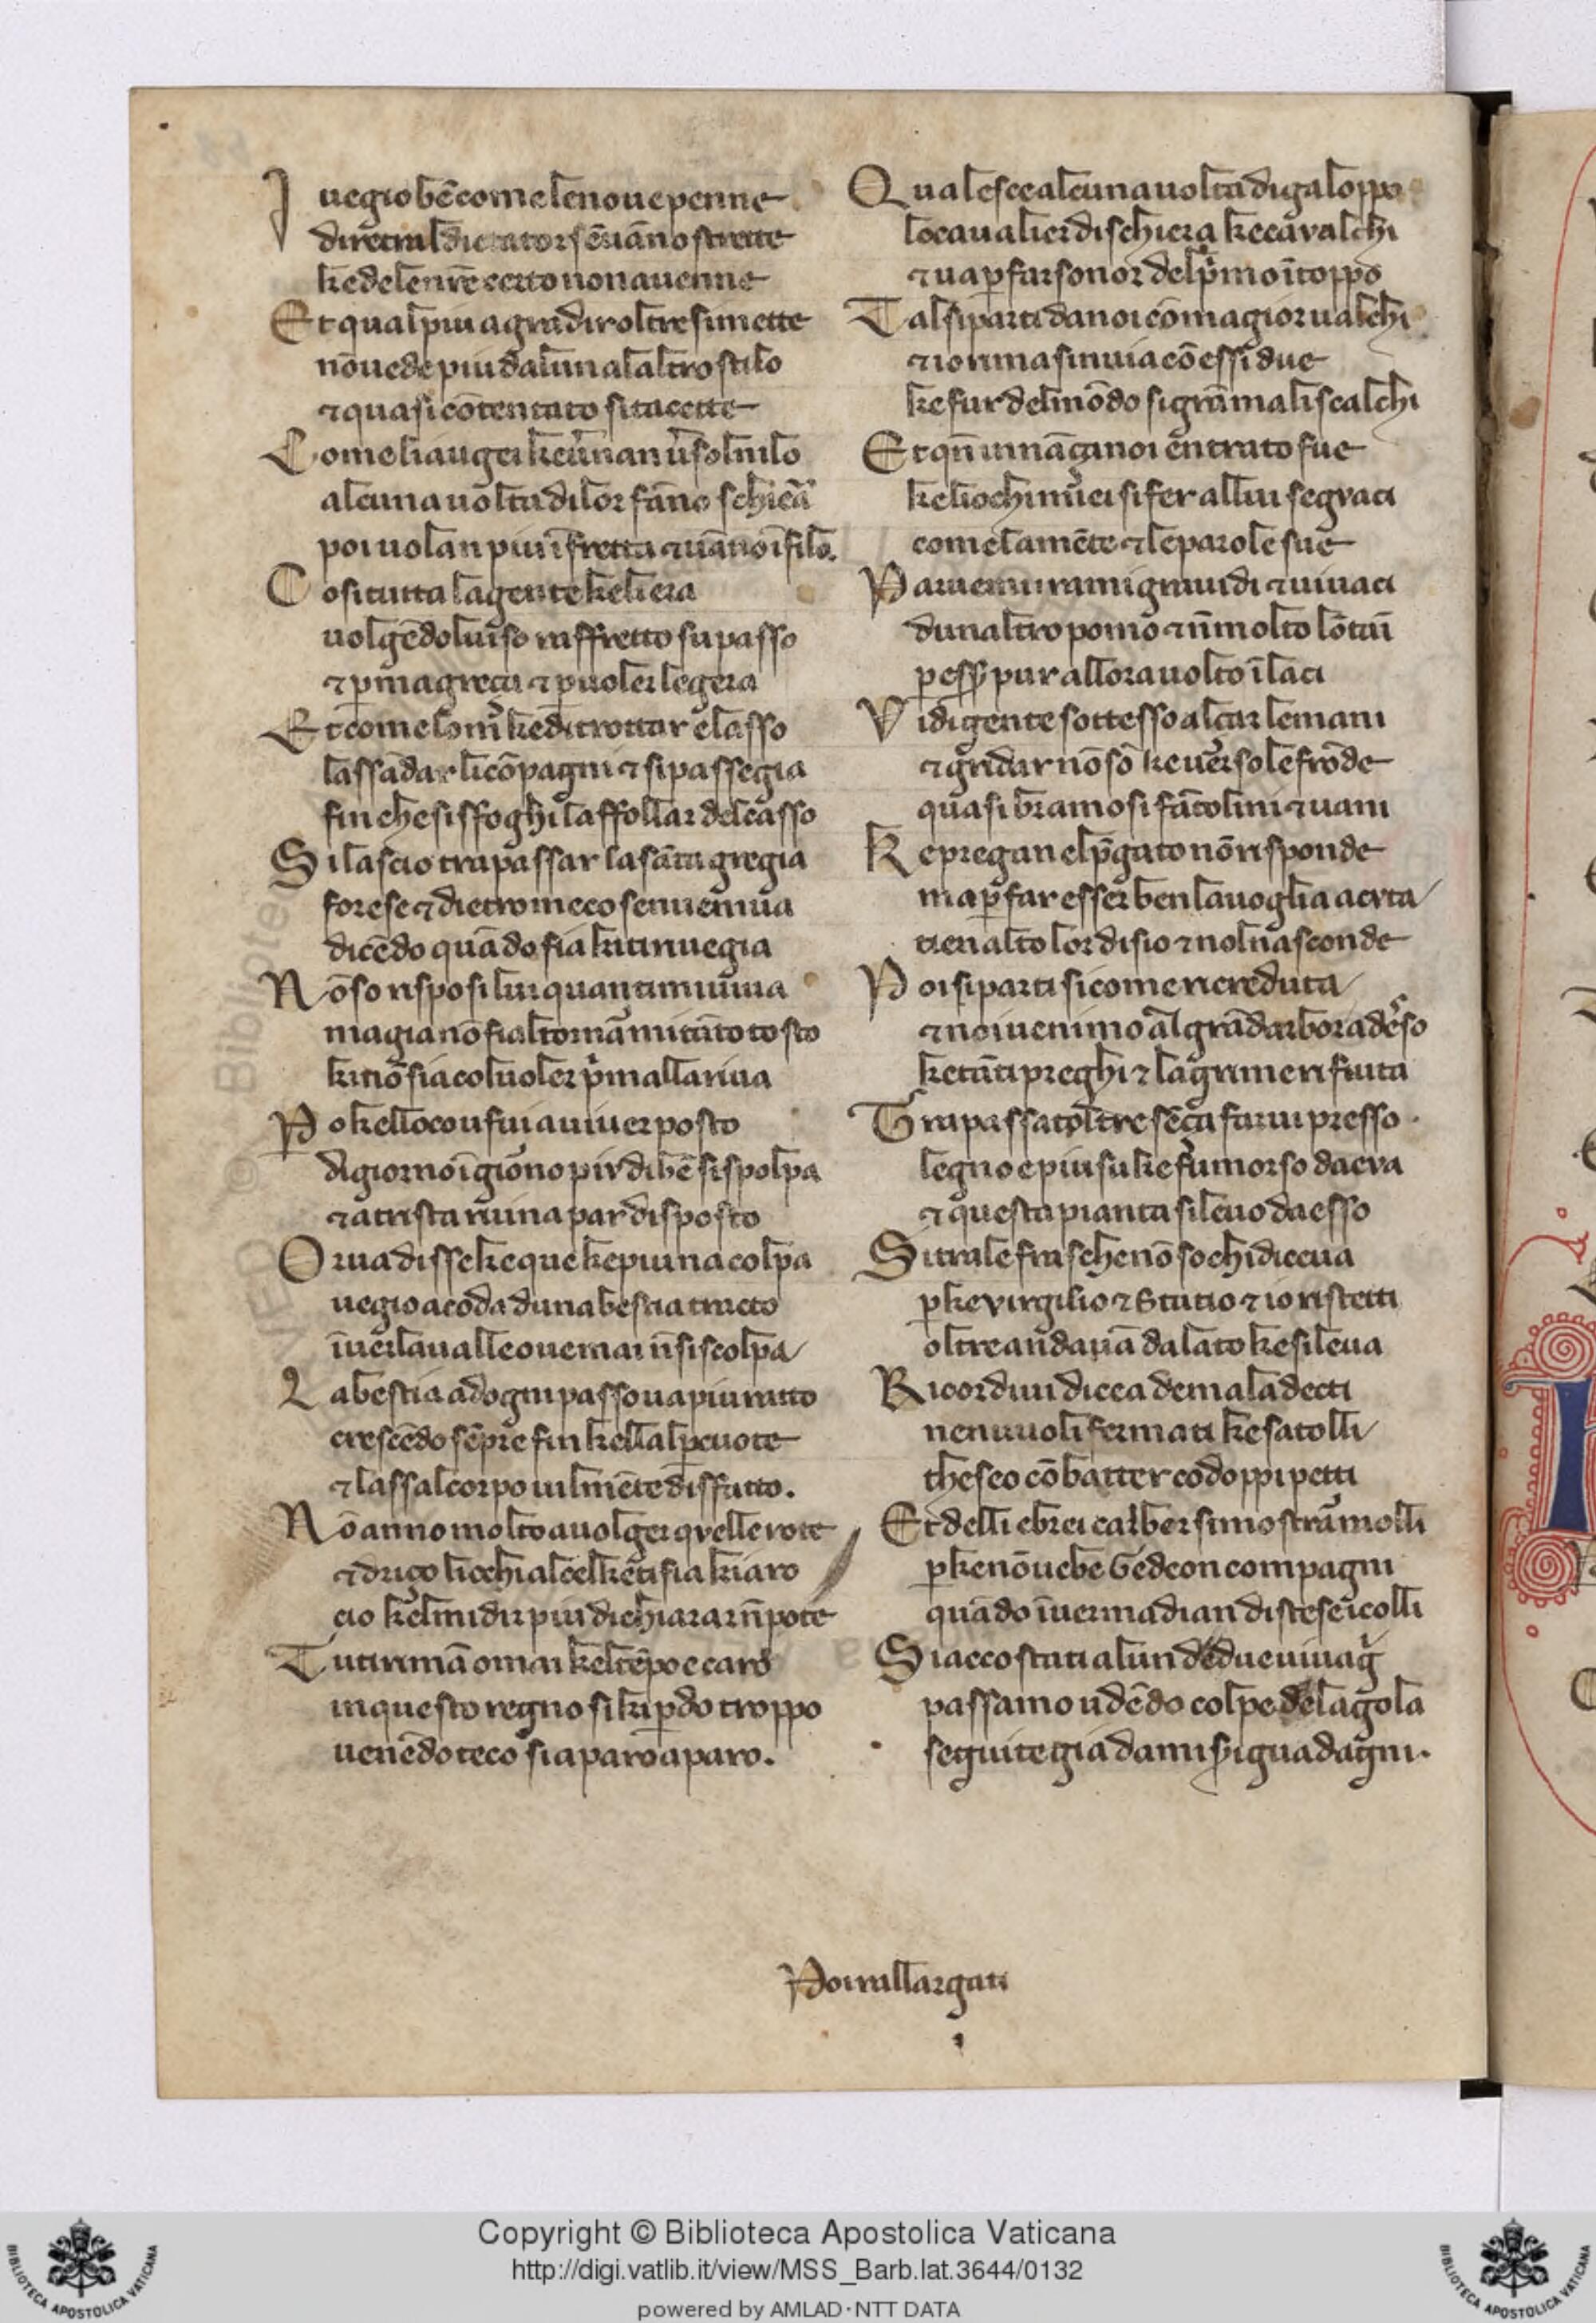 I uegio bē come le noue penne
diretral dictator sēuāno strette
ke de le nrē certo non auenne
Et qual piu a gradir oltre si mette
nō uede piu da lun a laltro stilo
⁊ quasi cōtentato si tacette
Come li augei ke uernan uso l nilo
alcuna uolta di lor fāno schiera
poi uolan piu ī fretta ⁊ uāno ī filo.
Cosi tutta la gente ke li era
uolgēdo luiso raffretto su passo
⁊ p magreça ⁊ p uoler legera
Et come lom ke di trottar e lasso
lassādar li cōpagni ⁊ si passegia
fin che si sfoghi laffollar del casso
Si lascio trapassar la sāta gregia
forese ⁊ dietro meco sen ueniua
dicēdo quādo fia kiti ri uegia
Nō so risposi lui quanti mi uiua
ma gia nō fia l tornāmi tāto tosto
ki nō sia col uoler p̄ma alla riua
Po kelloco u fui a uiuer posto
di giorno ī giorno piv di bē si spolpa
⁊ a trista ruina par disposto
Or ua disse ke que ke piu na colpa
uegio a coda duna bestia tracto
īuer la ualle oue mai nō si scolpa
La bestia ad ogni passo ua piu ratto
crescēdo sēpre fin kella l pcuote
⁊ lassa l corpo uilmēte disfatto.
Nō anno molto a uolger qvelle rote
⁊ driço li ochi al ciel ke ti fia kiaro
cio kel mi dir piu dichiarar nō pote
Tu ti rimā omai kel tēpo e caro
in questo regno si ki pdo troppo
uenēdo teco si a paro a paro.
Qual esce alcuna uolta di galoppo
lo caualier di schiera ke caualchi
⁊ ua p farsi onor del p̄mo ītoppo
Tal si parti da noi cō magior ualchi
⁊ io rimasi n uia cō essi due
ke fur del mōdo si grā malischalchi
Et qn̄ innāçi a noi entrato fue
ke li ochi miei si fer a llui seguaci
come la mēte ⁊ le parole sue
Paruermi i rami grauidi ⁊ uiuaci
dun altro pomo ⁊ nō molto lōtāi
p esser pur allora uolto ī laci
Vidi gente sottesso alçar le mani
⁊ gridar nō so ke uer so le frōde
quasi bramosi fātolini ⁊ uani
Ke pregan el p̄gato nō risponde
ma p far esser ben la uoglia acvta
tien alto lor disio ⁊ nol nasconde
Poi si parti si come ricreduta
⁊ noi uenimo al grādarbor adesso
ke tāti preghi ⁊ lagrime rifiuta
Trapassat oltre sēça farui presso
legno e piu su ke fu morso da eva
⁊ questa pianta si leuo da esso
Si tra le frasche nō so chi diceua
p ke virgilio ⁊ Statio ⁊ io ristetti
oltre andauā da lato ke si leua
Ricordiui dicea de malādecti
ne nuuoli formati ke satolli
theseo cōbatter co doppi petti
Et delli ebrei cal ber si mostrar molli
p ke nō uebe Gedeon compagni
quādo īuer madian discese i colli
Si accostati a lun de due uiuagni
passamo udēdo colpe de la gola
seguite gia da miseri guadagni.
Poi rallargati
Copyright © Biblioteca Apostolica Vaticana
http://digi.vatlib.it/view/MSS_Barb.lat.3644/0132
powered by AMLAD·NTT DATA